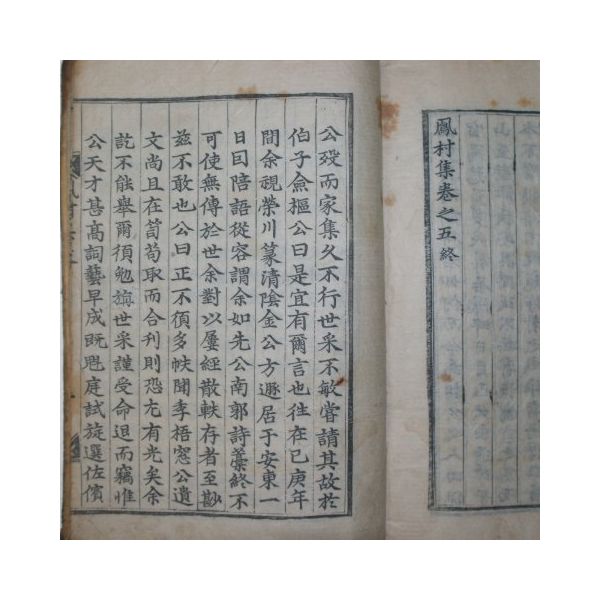 鳳村集卷之五終
公歿而家集久不行世采不敏嘗請其故於
伯子僉樞公曰是宜有爾言也往在己庚年
間余視榮川篆清陰金公方遯居于安東一
日因陪語從容謂余如先公南郭詩藁終不
可使無傳於世余對以屢經散軼存者至尠
玆不敢也公曰正不須多帙聞李梧窓公遺
文尚且在笥苟取而合刋則恐尤有光矣余
訖不能舉爾須勉旃世采謹受命退而竊惟
公天才甚高詞藝早成既魁庭試旋選佐儐